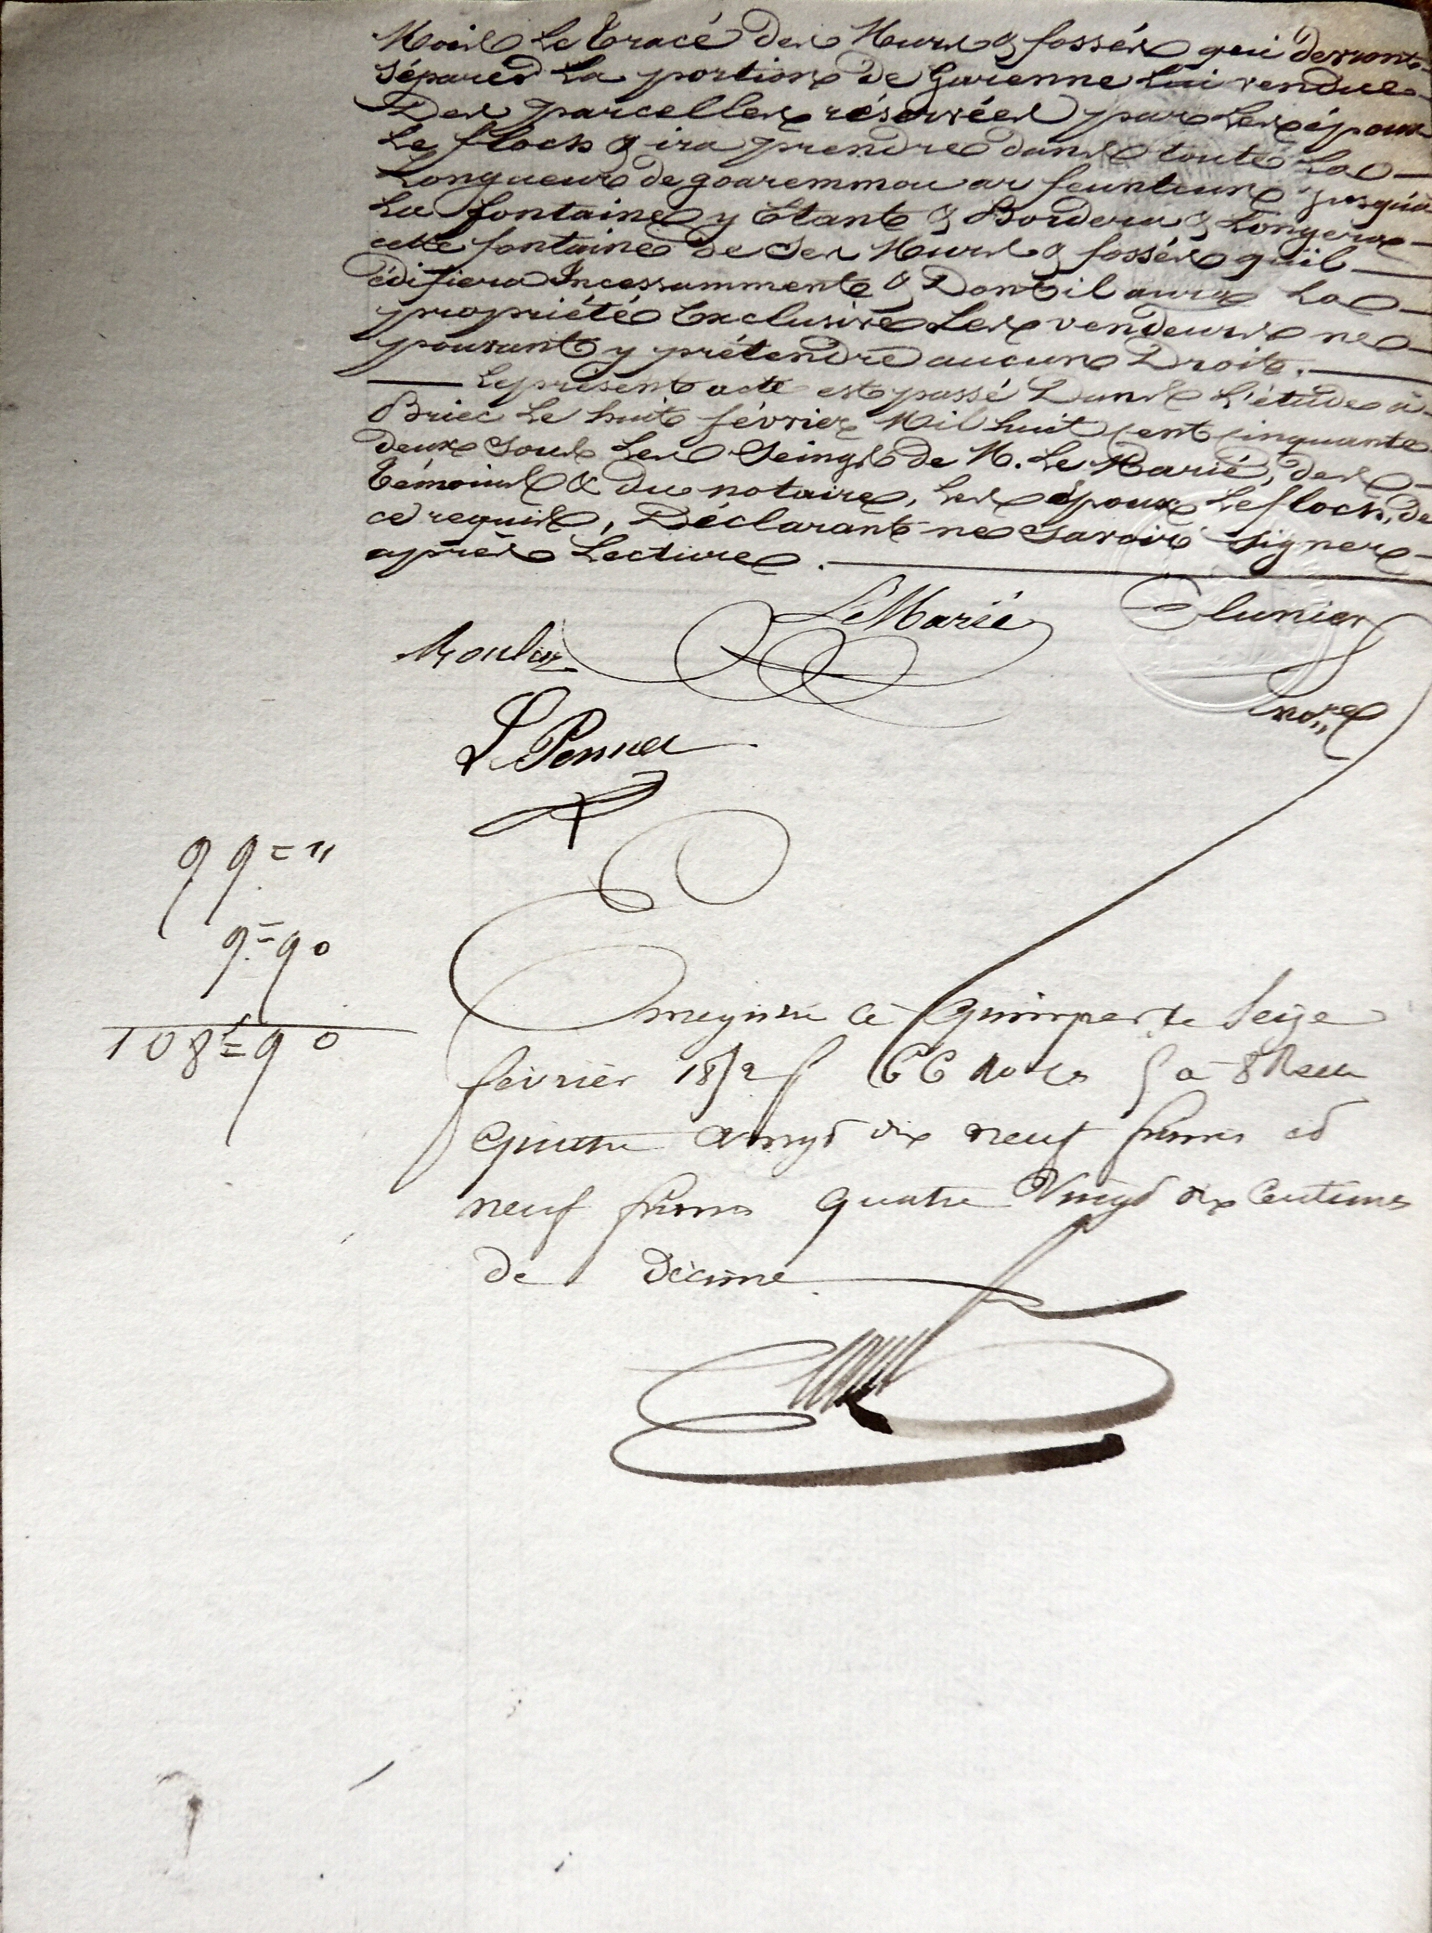 Mois le tracé des Murs & fossés qui devront
séparer la portion de Garenne lui vendue
Des parcelles réservées par les époux
Le floch & ira prendre dans toute la
Longueur de goaremmou ar feunteun jusqu'à
La fontaine y Etant & Bordera & Longera
cette fontaine de ses Murs & fossés qu'il
édifiera Incessamment & Dont il aura la
propriété Exclusive Les vendeurs ne
pouvant y prétendre aucun Droit.
Le présent acte est passé Dans L'étude à
Briec le huit février Mil huit cent cinquante
deux sous les Seings de M. Le Marié, des
témoins & du notaire, les époux Le floch, de
ce requis, Déclarant ne savoir signer
après Lecture.
Le Marié
Moulin
99 = "
9 = 90
108f = 90
Enregistré à Quimper le Seize
février 1852 f 66 Ro
quatre vingt dix neuf francs et
neuf francs quatre Vingt dix Centimes
de Décime